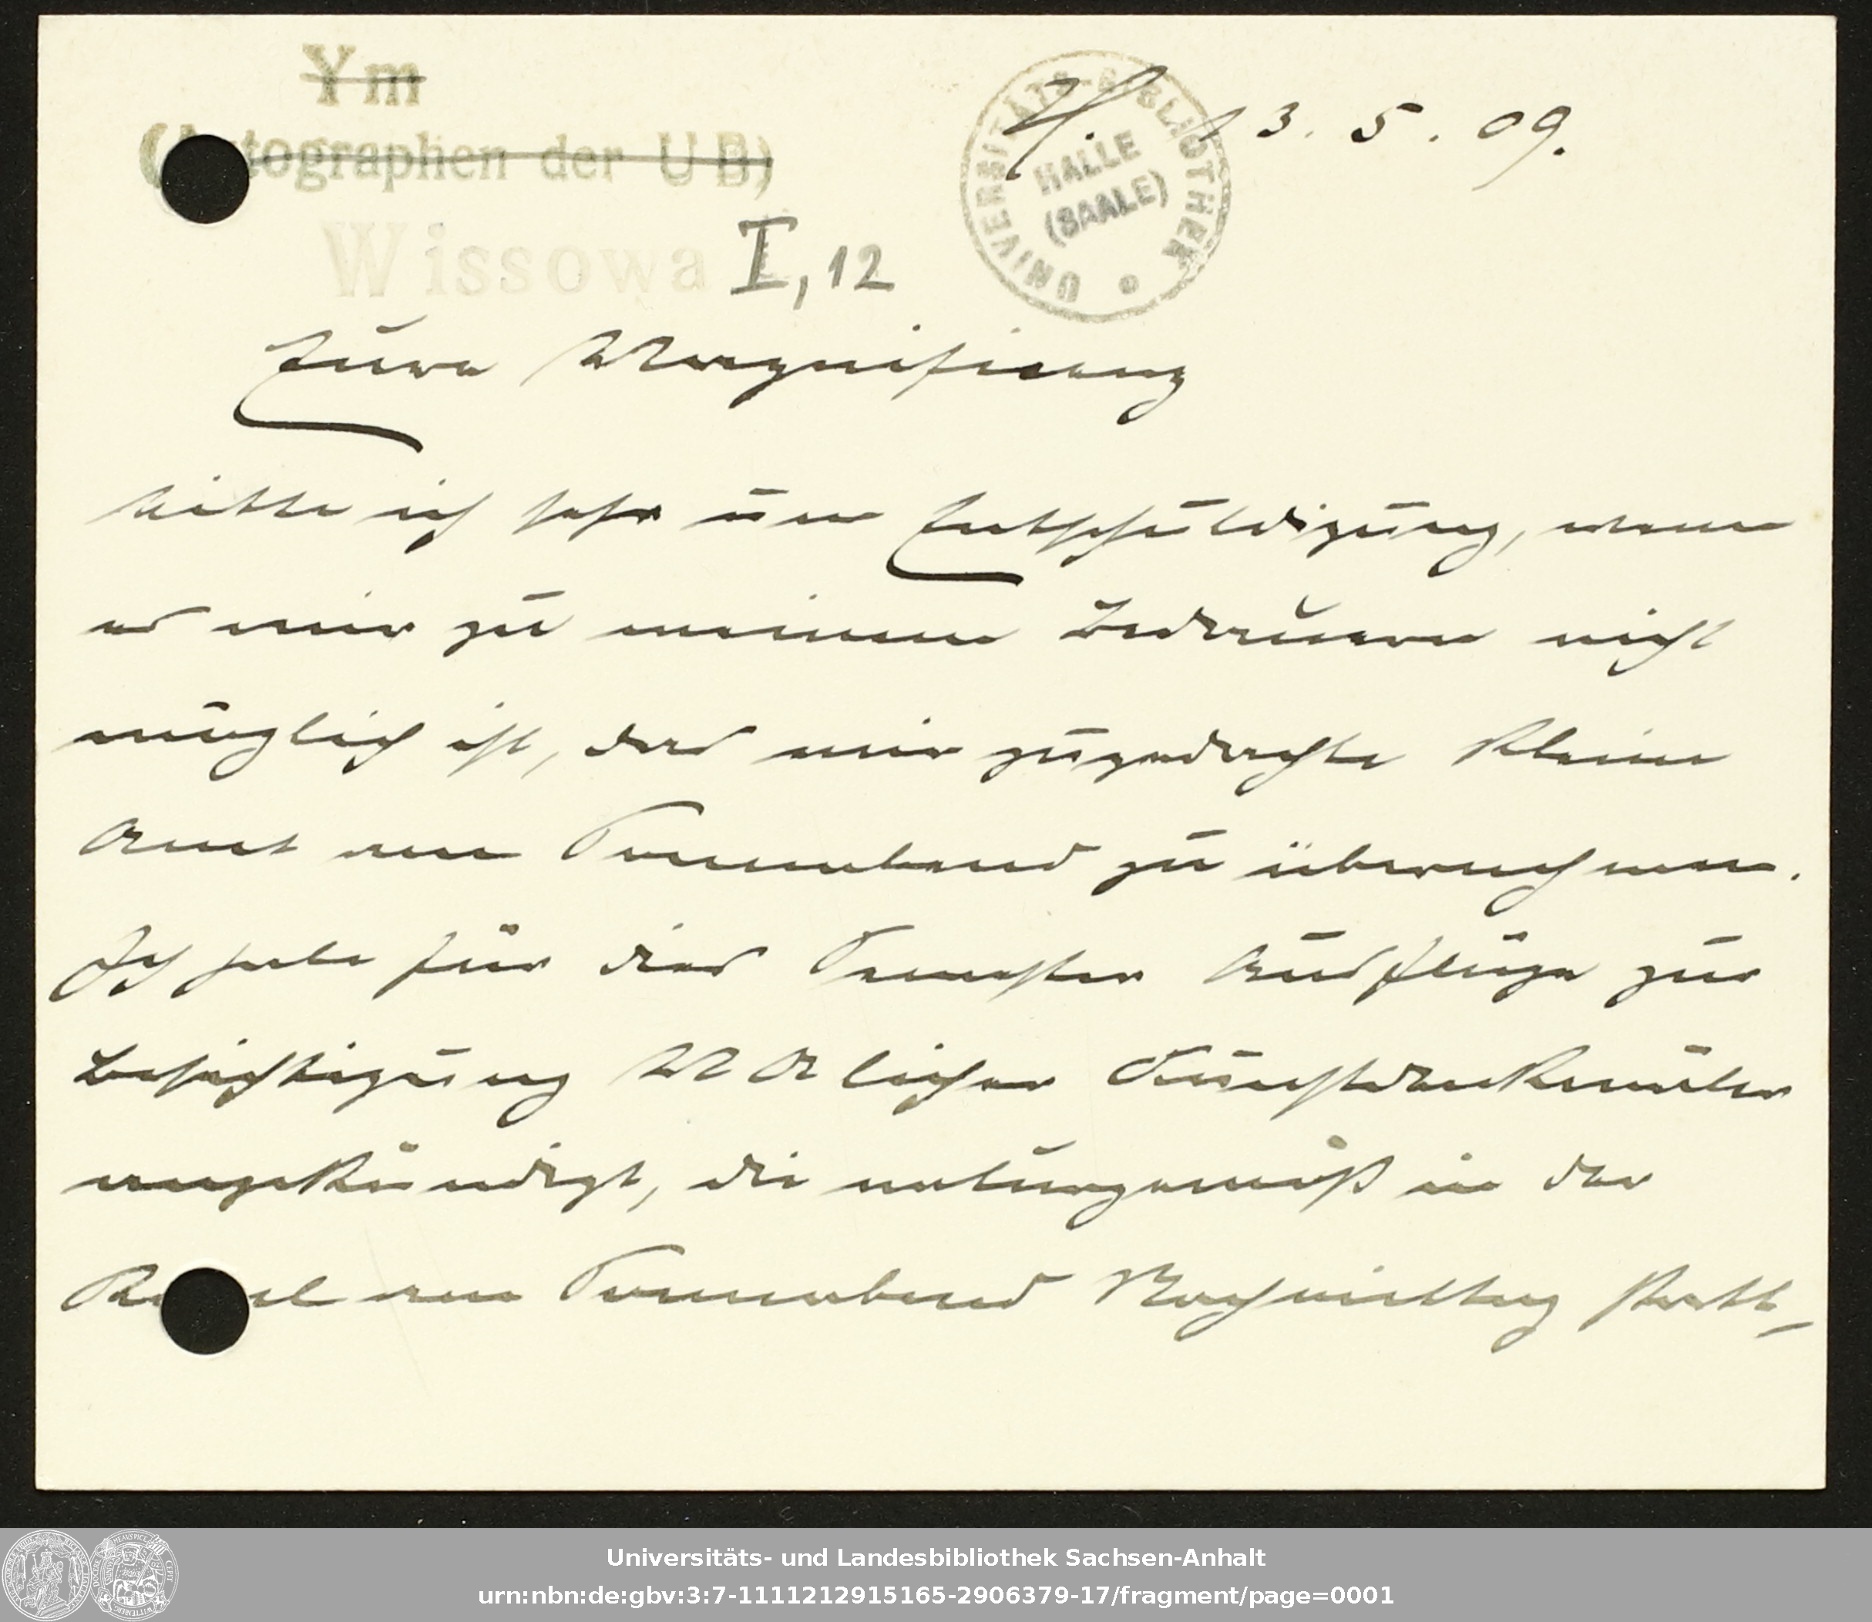 Ym
(Autographen der UB)
Wissowa I, 12
UNIVERSITÄTS-BIBLIOTHEK
HALLE
(SAALE)
H. 13. 5. 09.
Eurer Magnificenz
bitte ich sehr um Entschuldigung, wenn
es mir zu meinem Bedauern nicht
möglich ist, das mir zugedachte kleine
Amt am Sonnabend zu übernehmen.
Ich habe für dies Semester Ausflüge zur
Besichtigung MAlicher Kunstdenkmäler
angekündigt, die naturgemäß in der
Regel am Sonnabend Nachmittag statt-
Universitäts- und Landesbibliothek Sachsen-Anhalt
urn:nbn:de:gbv:3:7-1111212915165-2906379-17/fragment/page=0001